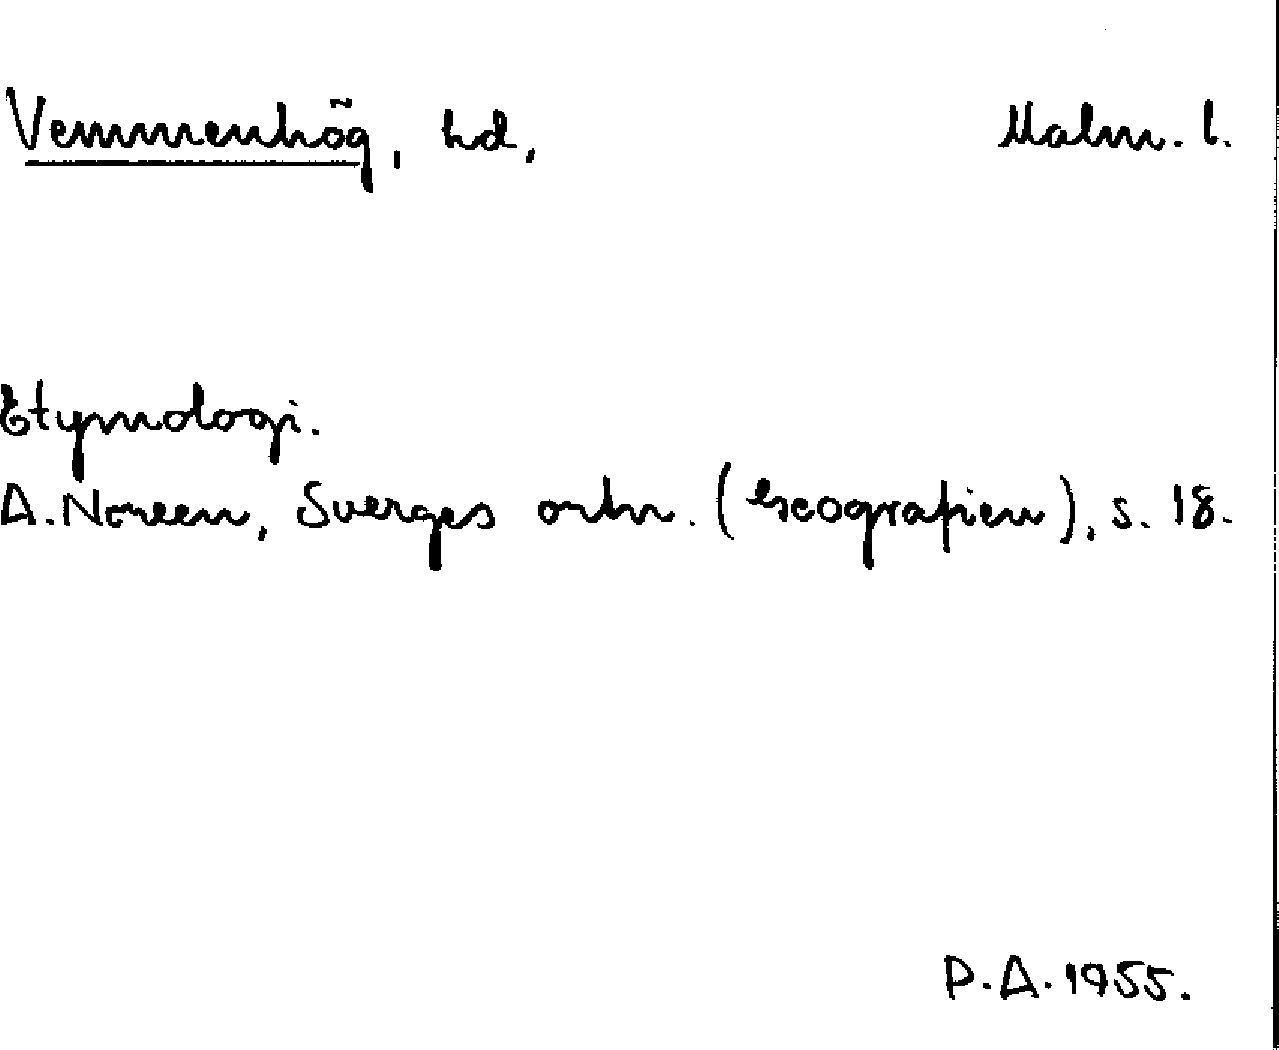 Vemmenhög, hd, Malm. l.
Etymologi.
A. Noreen, Sverges ortn. (Geografien), s. 18.
P.A. 1955.